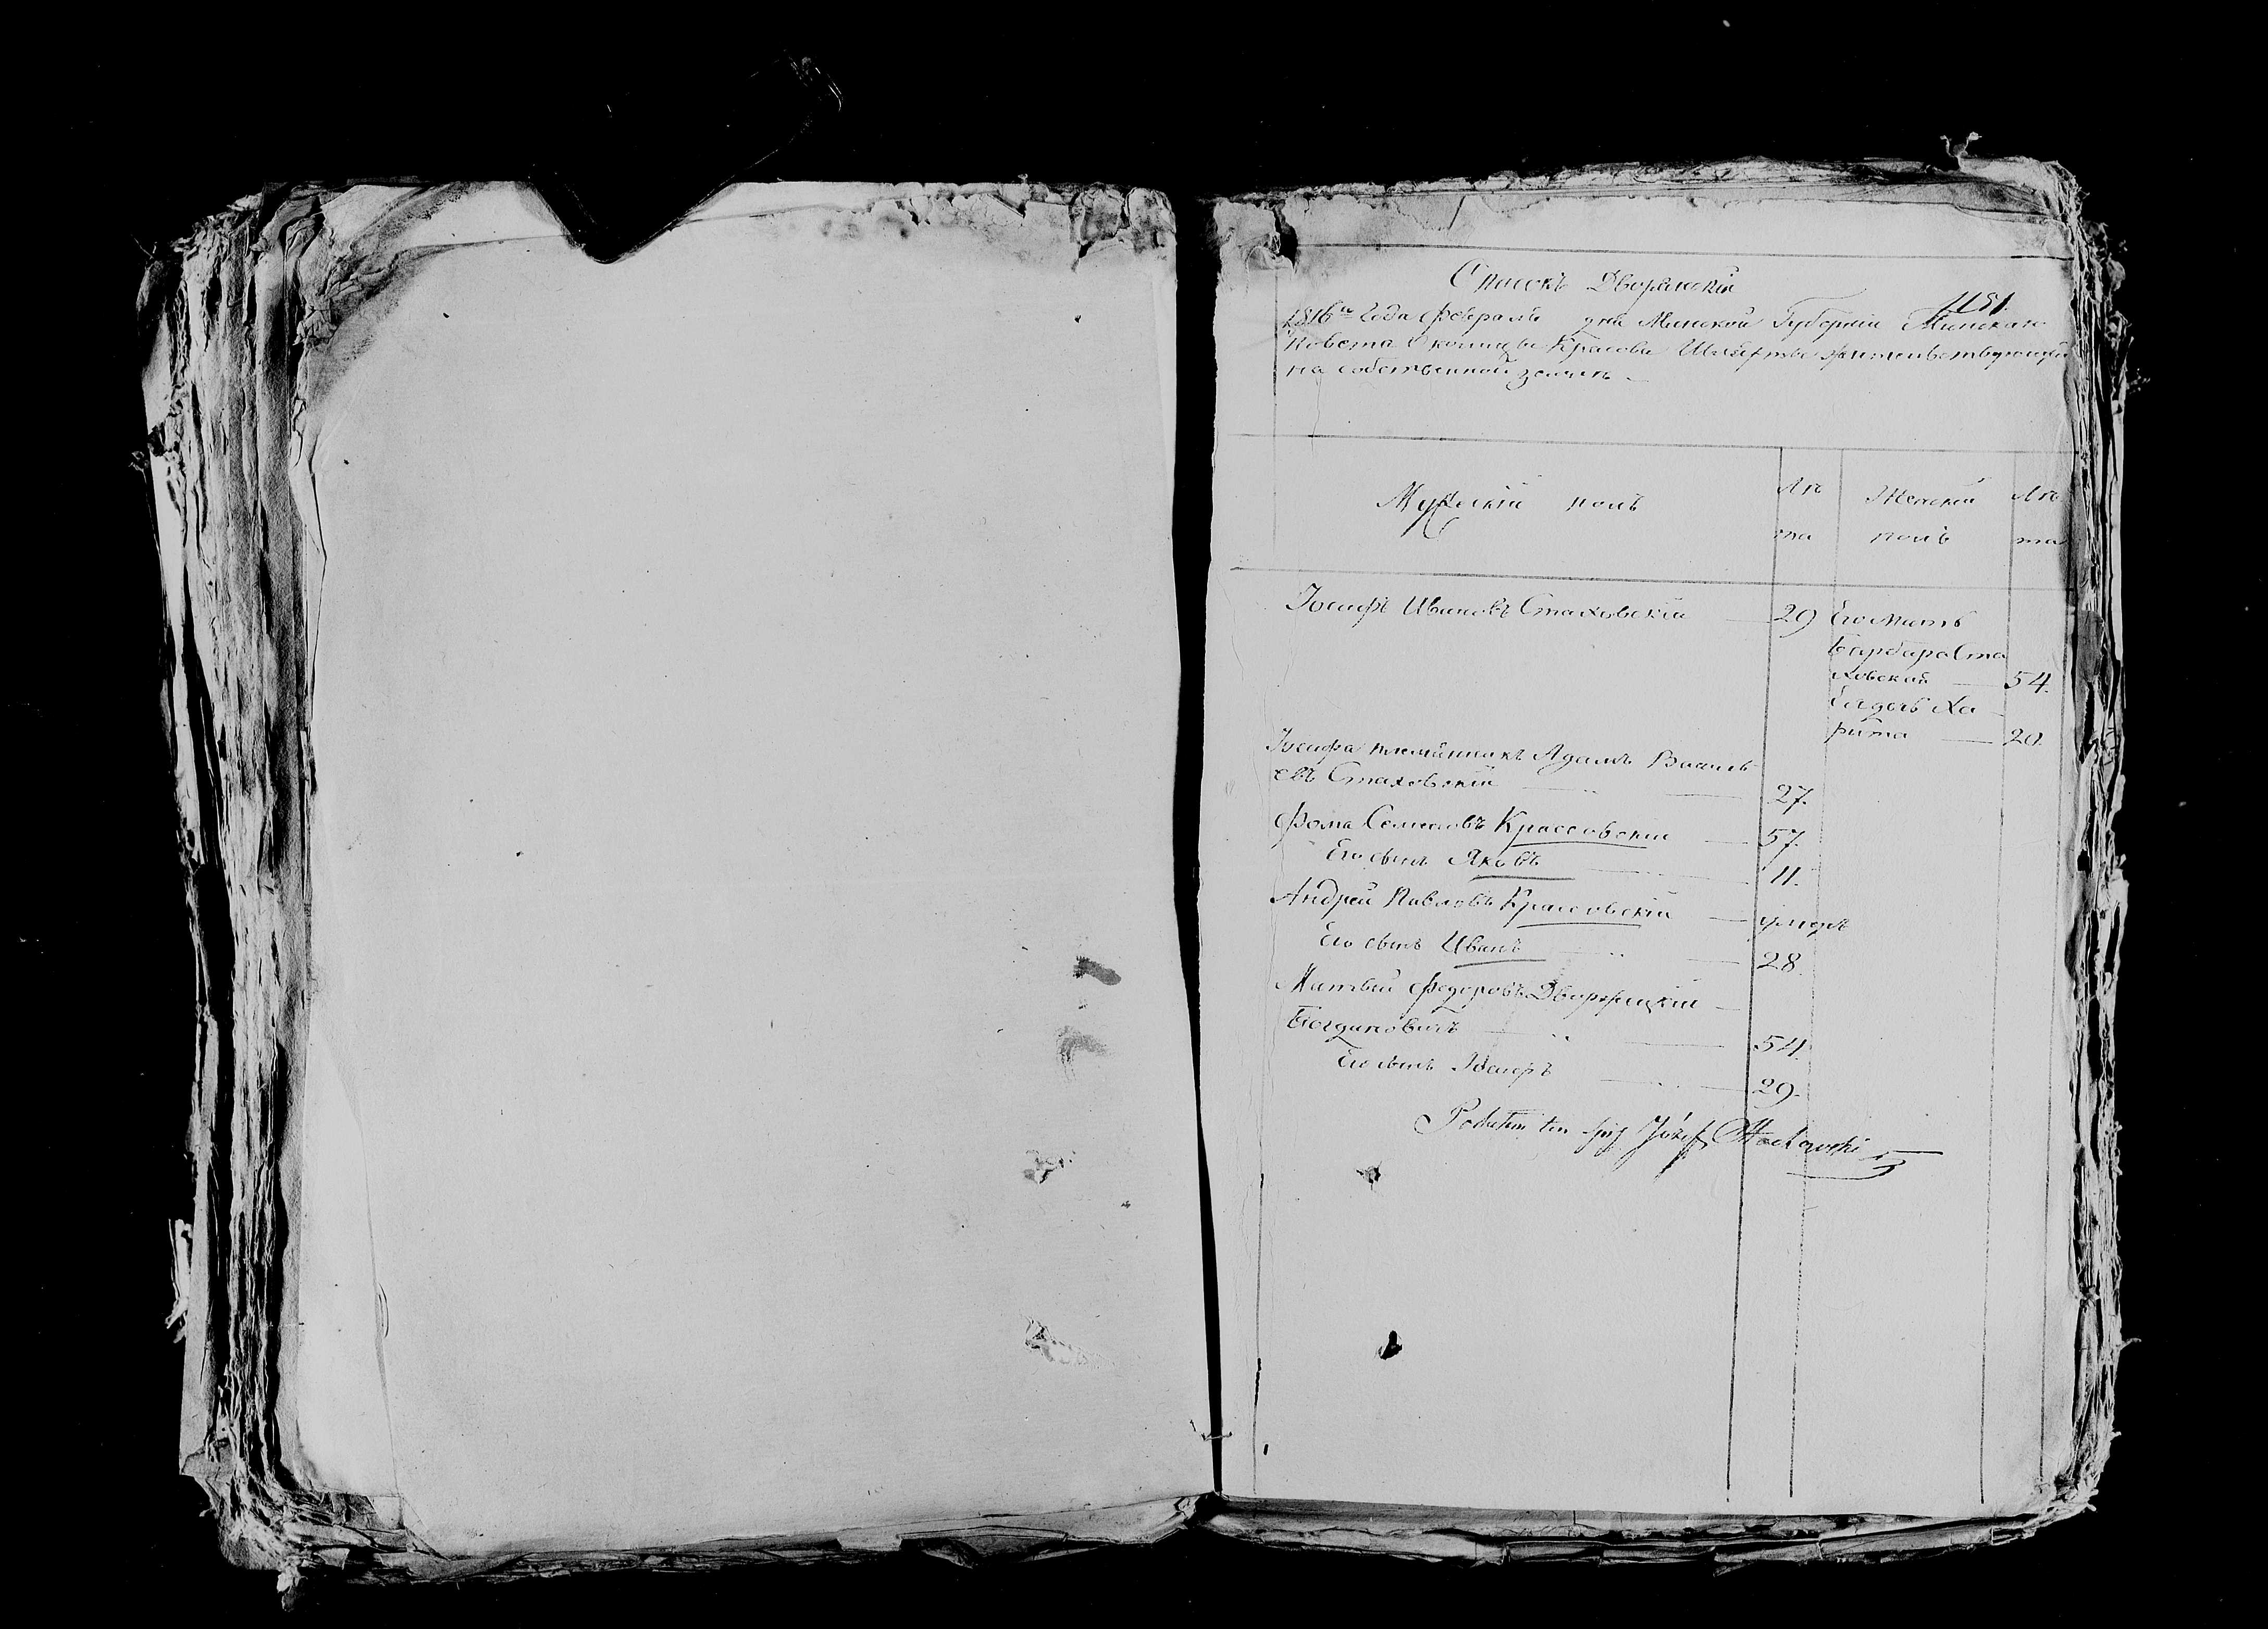 Списокъ Дворянскій
1181.
1816го Года Февраля дня Минской Губерніи Минского
Повета околицы Красовы Шляхты жительствующей
на собственной земли
Мужескій полъ
Лѣ
та
Женскій
полъ
Лѣ
та
Іосифъ Ивановъ Стаховскій 29 Его мать
Барбара Ста
ховская 54.
20.
Іосифа племянникъ Адамъ Василь
евъ Стаховскій 27.
Фома Семеновъ Крассовскій 57.
Его сынъ Яковъ 11.
Андрей Павловъ Крассовскій умеръ
Его сынъ Иванъ 28.
Матвей Федоровъ Дворжицкій
Богдановичъ 54.
Его сынъ 29.
Podałem ten Józef Stachowski